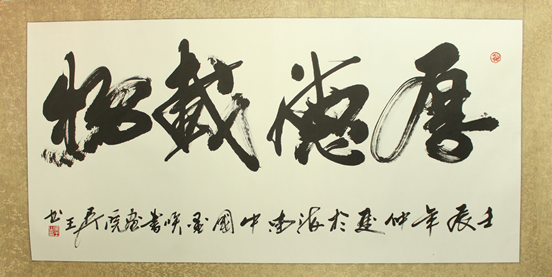 厚德載物
壬辰年仲夏於海南中國書畫院王书